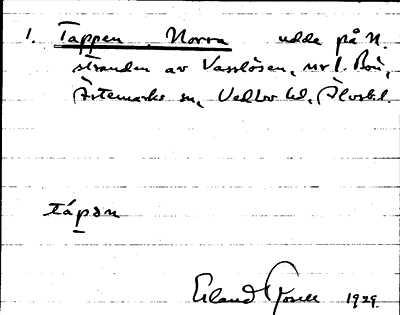 1. Tappen, Norra udde på N.
stranden av Vasslösen, nr 1. Bön,
Ärtemarks sn, Vedbo hd, Älvsb.l.
tápən
Erland Rosell 1929.